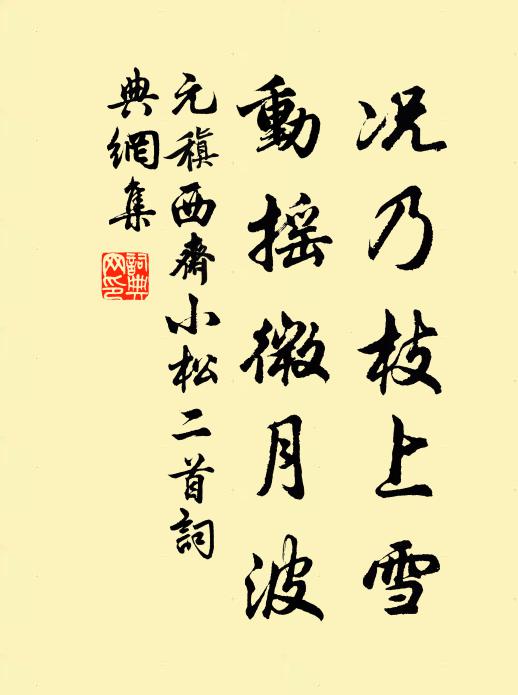 况乃枝上雪
動搖微月波
元稹西齋小松二首詞
典網集
詞典
网印